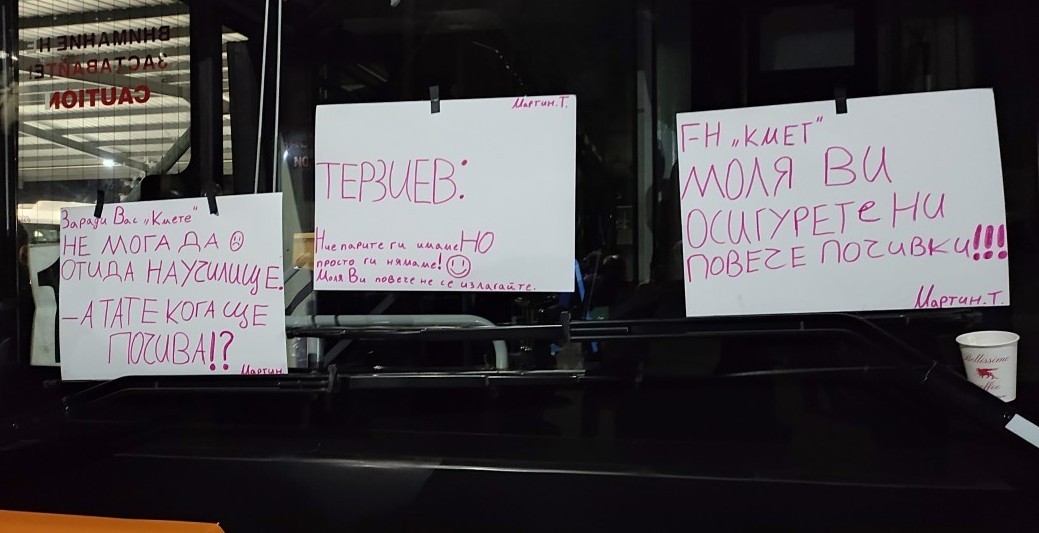 ВНИМАНИЕ Н
ЗАСТАВАЙТЕ!
CAUTION
Заради Вас „Кмете“
НЕ МОГА ДА ☹
ОТИДА НАУЧИЛИЩЕ.
–А ТАТЕ КОГА ЩЕ
ПОЧИВА!?
Мартин.
Мартин.Т.
ТЕРЗИЕВ:
Ние парите ги имаме НО
просто ги нямаме! ☺
Моля Ви повече не се излагайте.
Г-Н „КМЕТ“
МОЛЯ ВИ
ОСИГУРЕТЕ НИ
ПОВЕЧЕ ПОЧИВКИ!!!
Мартин.Т.
Bellissimo
coffee